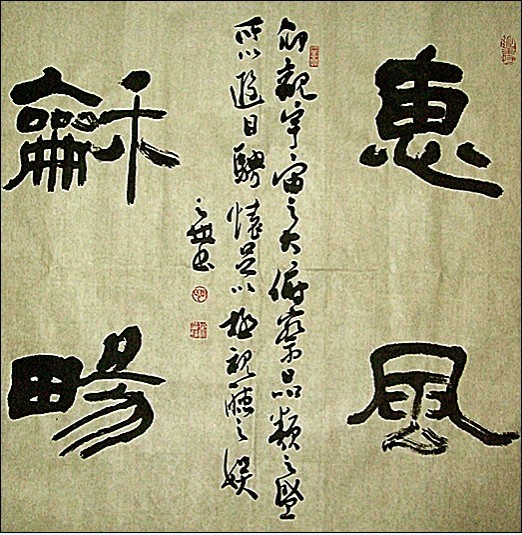 惠風
仰觀宇宙之大俯察品類之盛
所以遊目騁懷足以極視聽之娛
龢畼